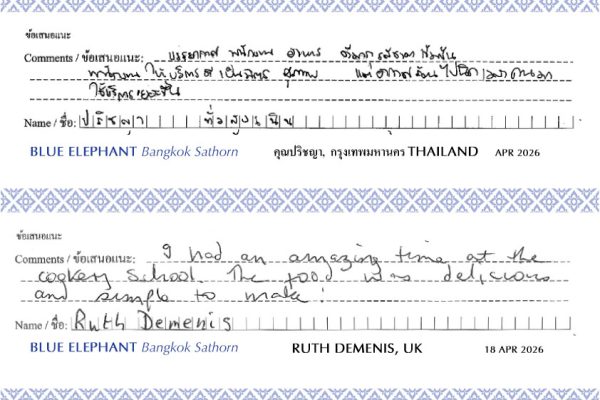 ข้อเสนอแนะ
Comments / ข้อเสนอแนะ: บรรยากาศ พนักงาน อาหาร
พนักงาน ให้บริการดี เป็นมิตร สุภาพ แต่อากาศร้อนไปนิด
ใช้บริการเยอะขึ้น
Name / ชื่อ: ปริชญา
BLUE ELEPHANT Bangkok Sathorn คุณปริชญา, กรุงเทพมหานคร THAILAND APR 2026
ข้อเสนอแนะ
Comments / ข้อเสนอแนะ: I had an amazing time at the
cookery school. The food was delicious
and simple to make!
Name / ชื่อ: Ruth Demenis
BLUE ELEPHANT Bangkok Sathorn RUTH DEMENIS, UK 18 APR 2026